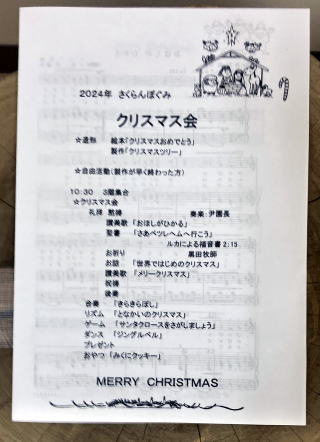 2024年 さくらんぼぐみ
クリスマス会
☆造形 絵本「クリスマスおめでとう」
製作「クリスマスツリー」
☆自由活動(製作が早く終わった方)
10:30 3階集合
☆クリスマス会
礼拝 黙祷 奏楽:尹園長
讃美歌「おほしがひかる」
聖書 「さあベツレヘムへ行こう」
ルカによる福音書 2:15
お祈り 黒田牧師
お話 「世界ではじめのクリスマス」
讃美歌 「メリークリスマス」
祝祷
後奏
合奏 「きらきらぼし」
リズム 「となかいのクリスマス」
ゲーム 「サンタクロースをさがしましょう」
ダンス 「ジングルベル」
プレゼント
おやつ 「みくにクッキー」
MERRY CHRISTMAS